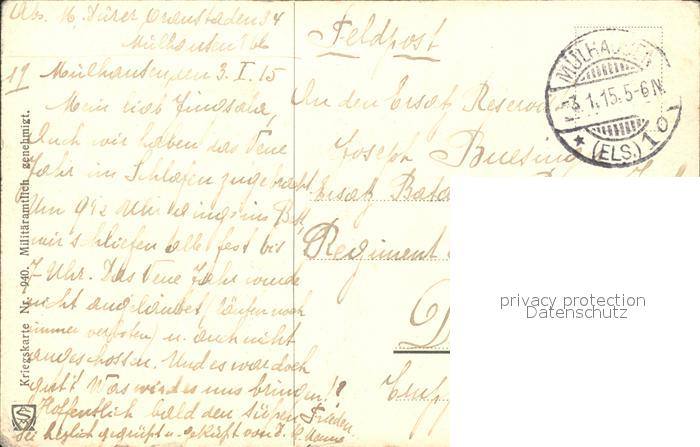 Abs. M. Dürer Oranstaden 34
Mülhausen Els.
19 Mülhausen, den 3. I. 15
Mein lieb
Auch wir haben das Neue
Jahr im Schlafen zugebracht.
Um 9½ Uhr gings ins Bett,
wir schliefen alle fest bis
7 Uhr. Das Neue Jahr wurde
nicht angeläutet, (läuten noch
immer verboten) u. auch nicht
angeschossen. Und es war doch
gut! Was wird es uns bringen!?
Hoffentlich bald den süßen Frieden.
Sei herzlich gegrüßt u. geküßt von D. Mama
Feldpost
An den Ersatz Reserv
Joseph Buesing
Ersatz Bata
Regiment
MÜLHAUSEN
-3.1.15.5-6N.
* (ELS.) 1 o
Kriegskarte Nr. 940. Militäramtlich genehmigt.
privacy protection
Datenschutz